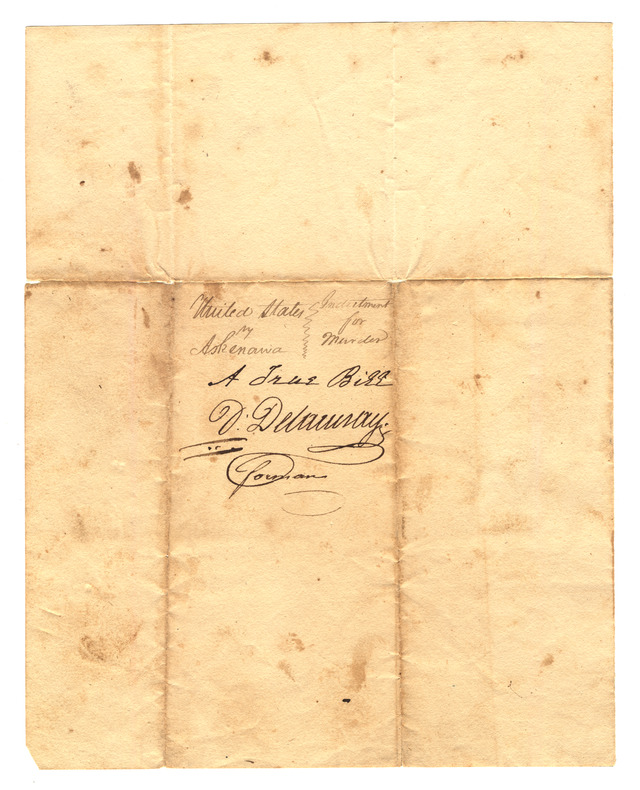 United States
Indictment
vs
for
Askenawa
Murder
A True Bill
D. Delaunay.
forman